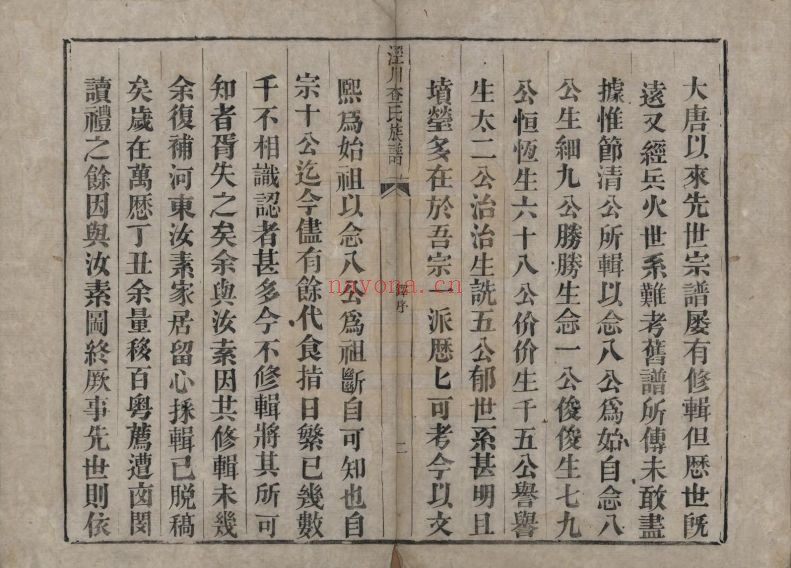 大唐以來先世宗譜屡有修輯但歴世旣
遠又經兵火世系難考舊譜所傳未敢盡
據惟節清公所輯以念八公爲始自念八
公生細九公勝勝生念一公俊俊生七九
公恒恆生六十八公价价生千五公譽譽
生太二公治治生詵五公郁世系甚明且
墳塋多在於吾宗一派歴七可考今以文
涇川查氏族譜
舊序
二
熙爲始祖以念八公爲祖斷自可知也自
宗十公迄今僅有餘代食指日繁已幾數
千不相識認者甚多今不修輯將其所可
知者胥失之矣余與汝素因其修輯未幾
余復補河東汝素家居留心採輯已脱稿
矣歲在萬歴丁丑余量移百粵薦遭鹵閔
讀禮之餘因與汝素圖終厥事先世則依
nayona.cn